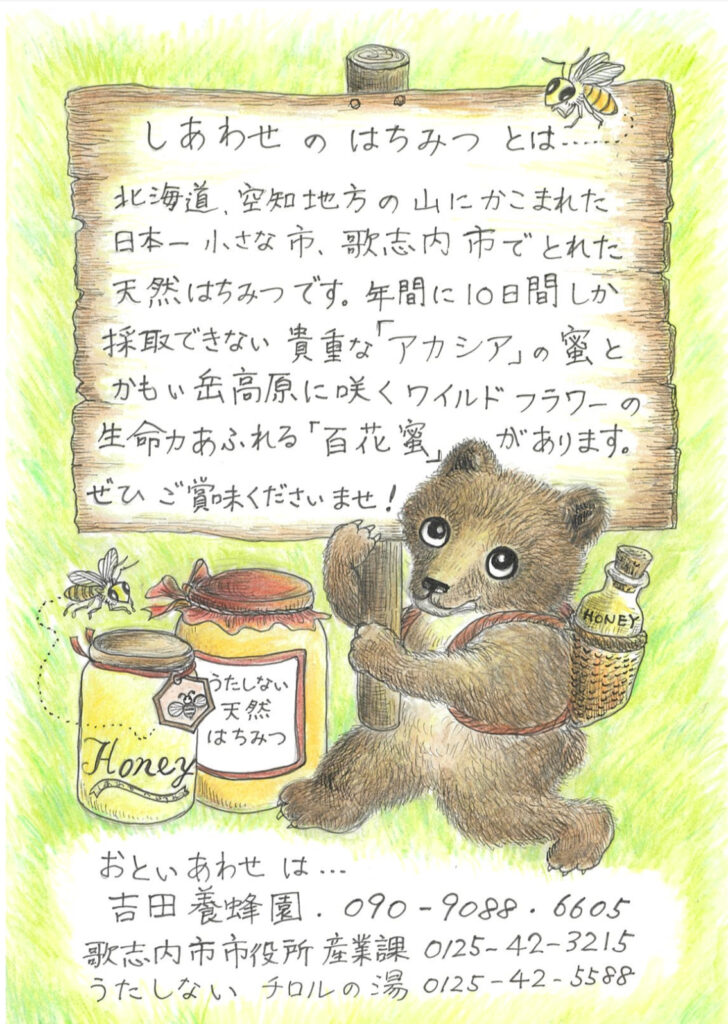 しあわせ の はちみつ とは……
北海道、空知地方の山にかこまれた
日本一小さな市、歌志内市でとれた
天然はちみつです。年間に10日間しか
採取できない貴重な「アカシア」の蜜と
かもい岳高原に咲くワイルドフラワーの
生命力あふれる「百花蜜」があります。
ぜひご賞味くださいませ！
HONEY
うたしない
天然
はちみつ
Honey
おといあわせ は…
吉田養蜂園．090-9088・6605
歌志内市市役所産業課 0125-42-3215
うたしない チロルの湯 0125-42-5588